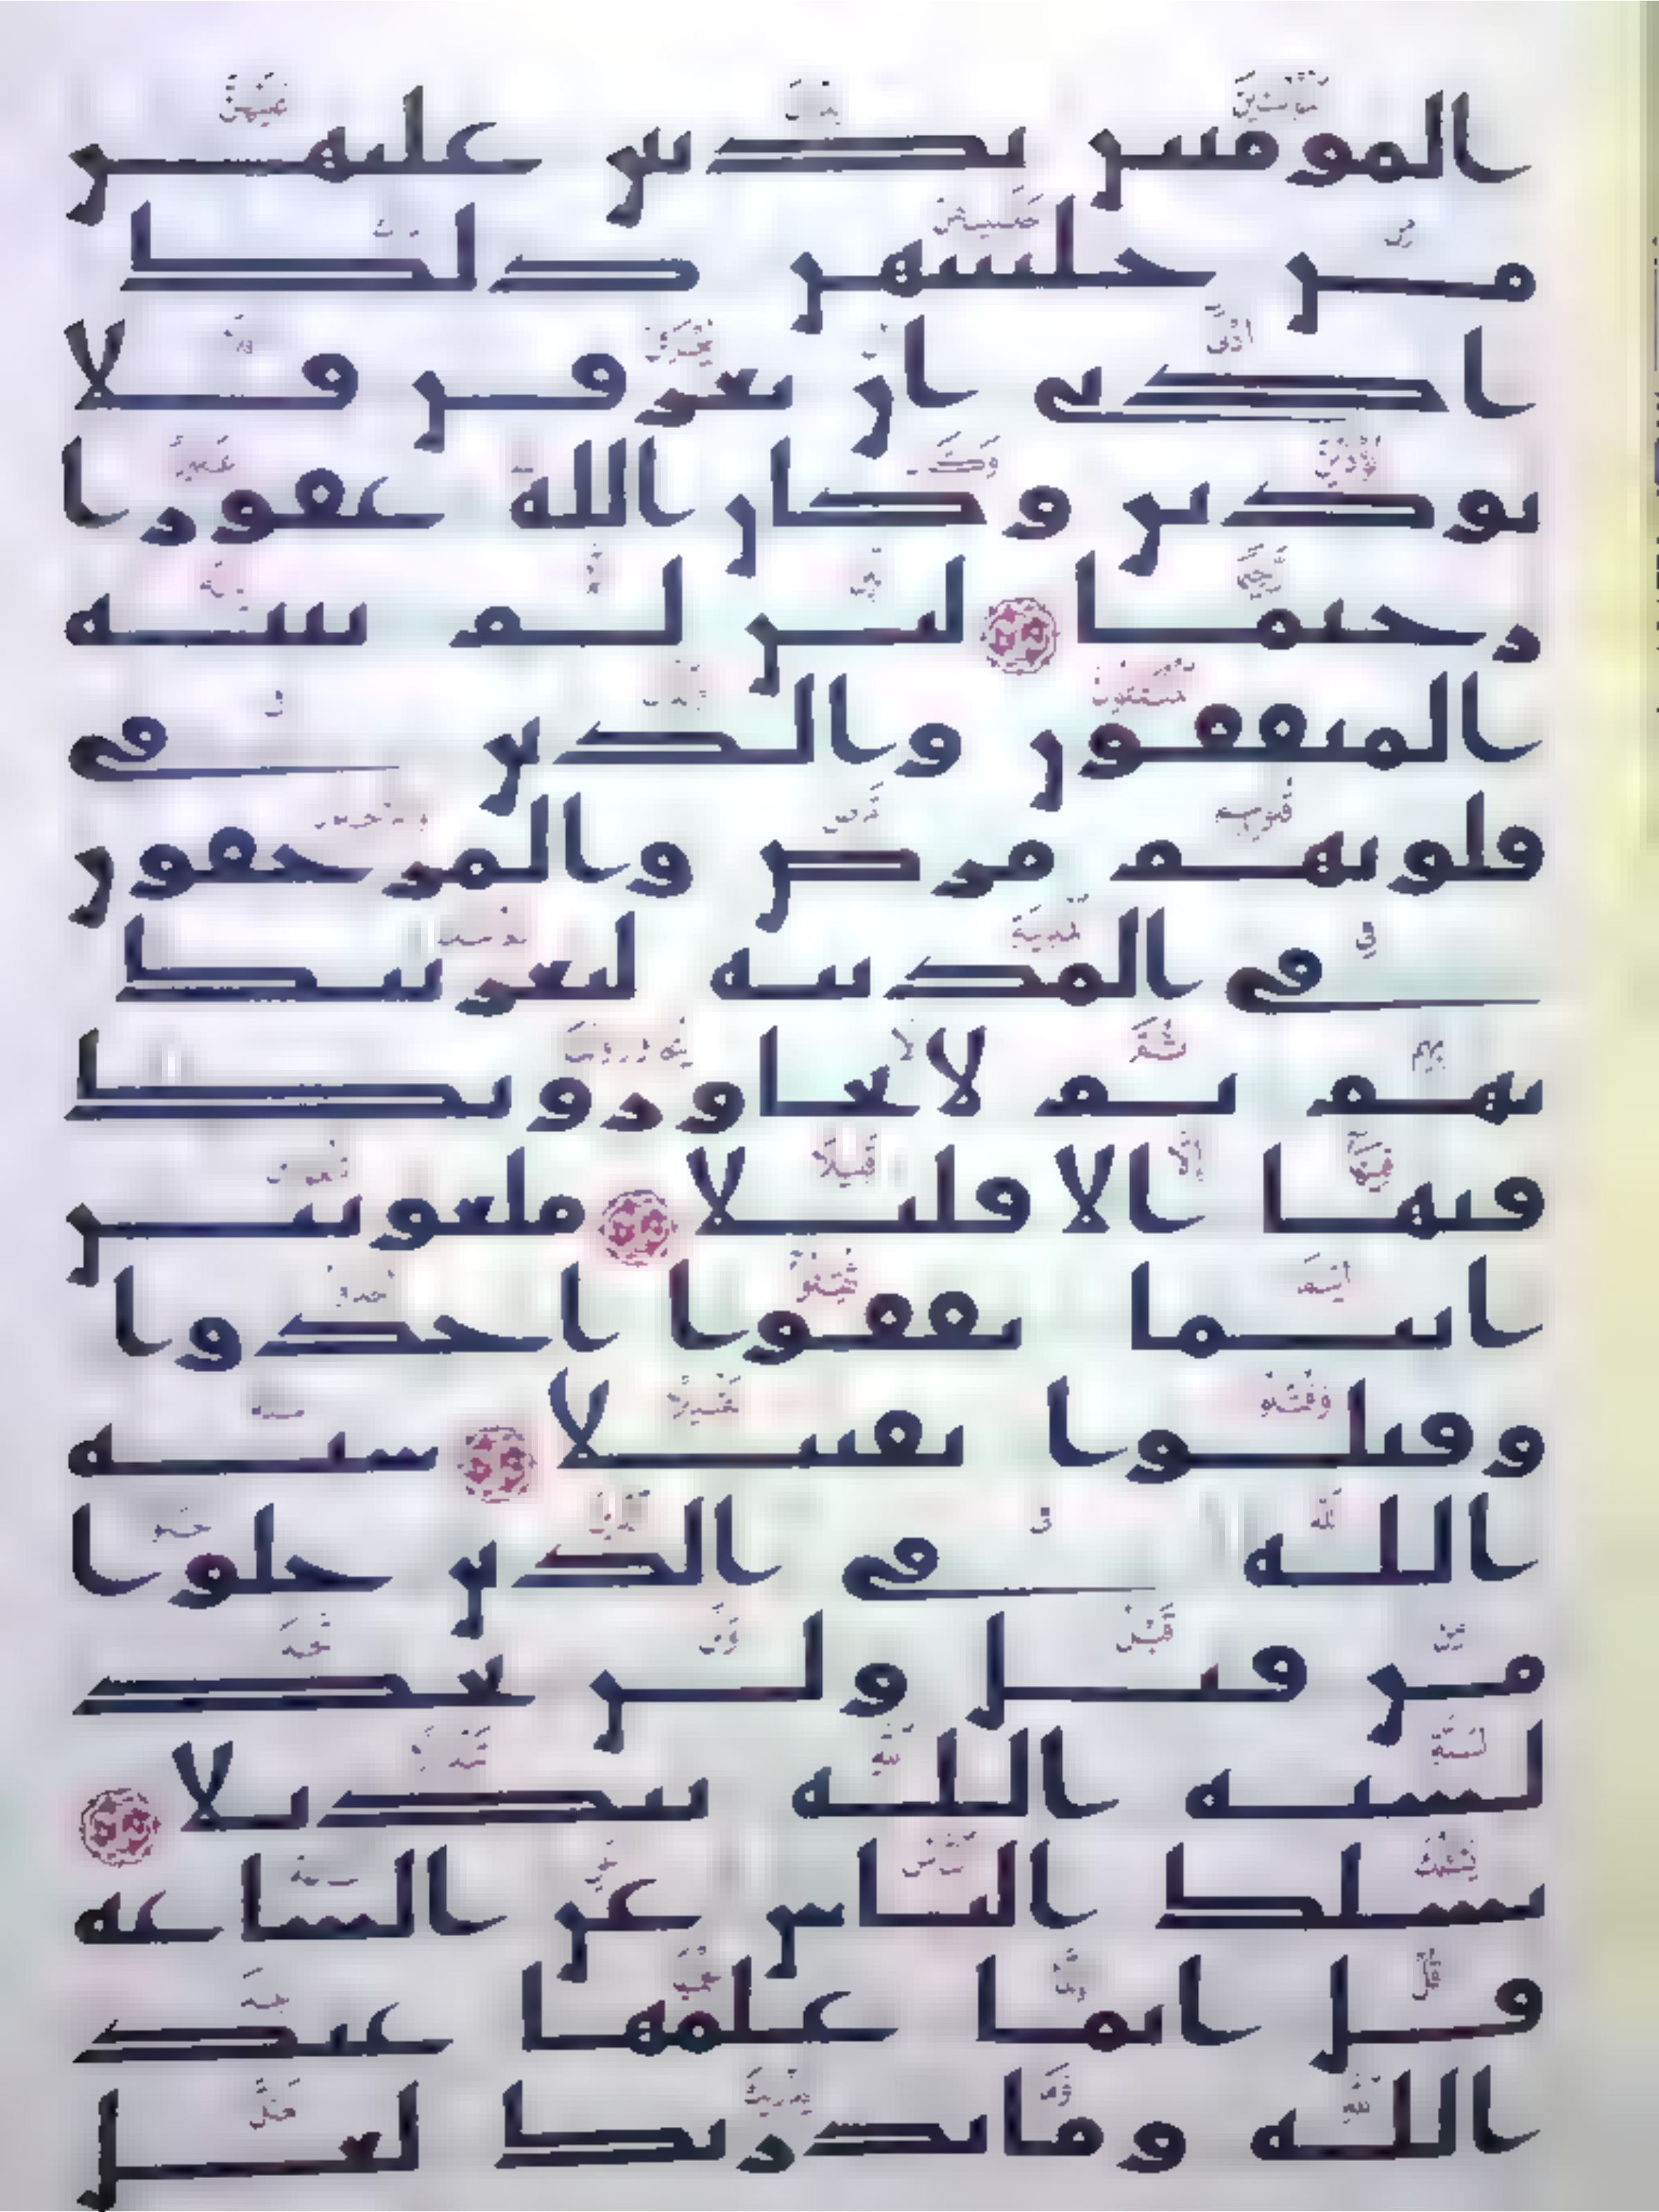 المومنين يدنين عليهن
من جلبيبهن ذلك
ادنى ان يعرفن فلا
يوذين وكان الله غفورا
رحيما لين لم ينته
المنفقون والذين في
قلوبهم مرض والمرجفون
في المدينة لنغرينك
بهم ثم لا يجاورونك
فيها الا قليلا ملعونين
اينما ثقفوا اخذوا
وقتلوا تقتيلا سنة
الله في الذين خلوا
من قبل ولن تجد
لسنة الله تبديلا
يسلك الناس عن الساعة
قل انما علمها عند
الله وما يدريك لعل